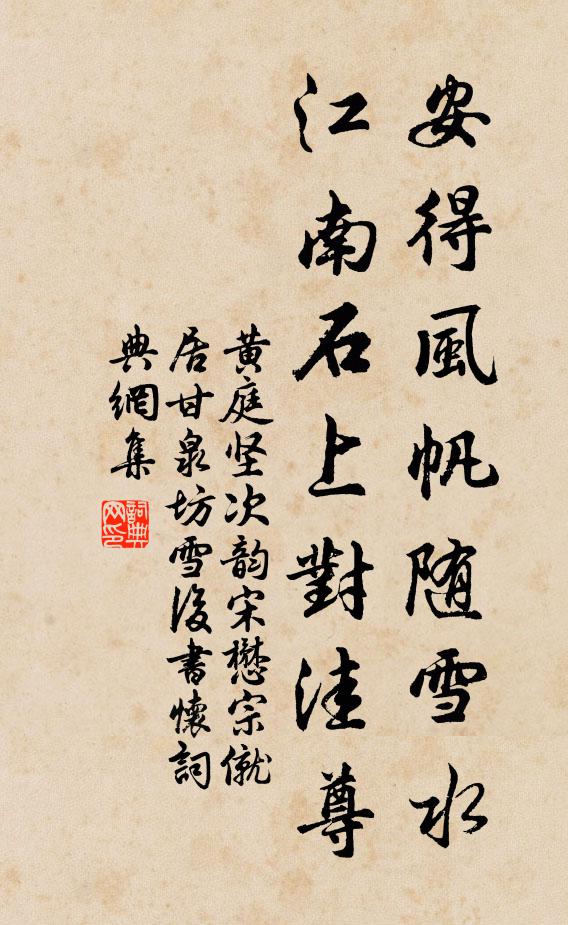 安得風帆随雪水
江南石上對洼尊
黄庭坚次韵宋懋宗僦
居甘泉坊雪後書懷詞
典網集
詞典网印